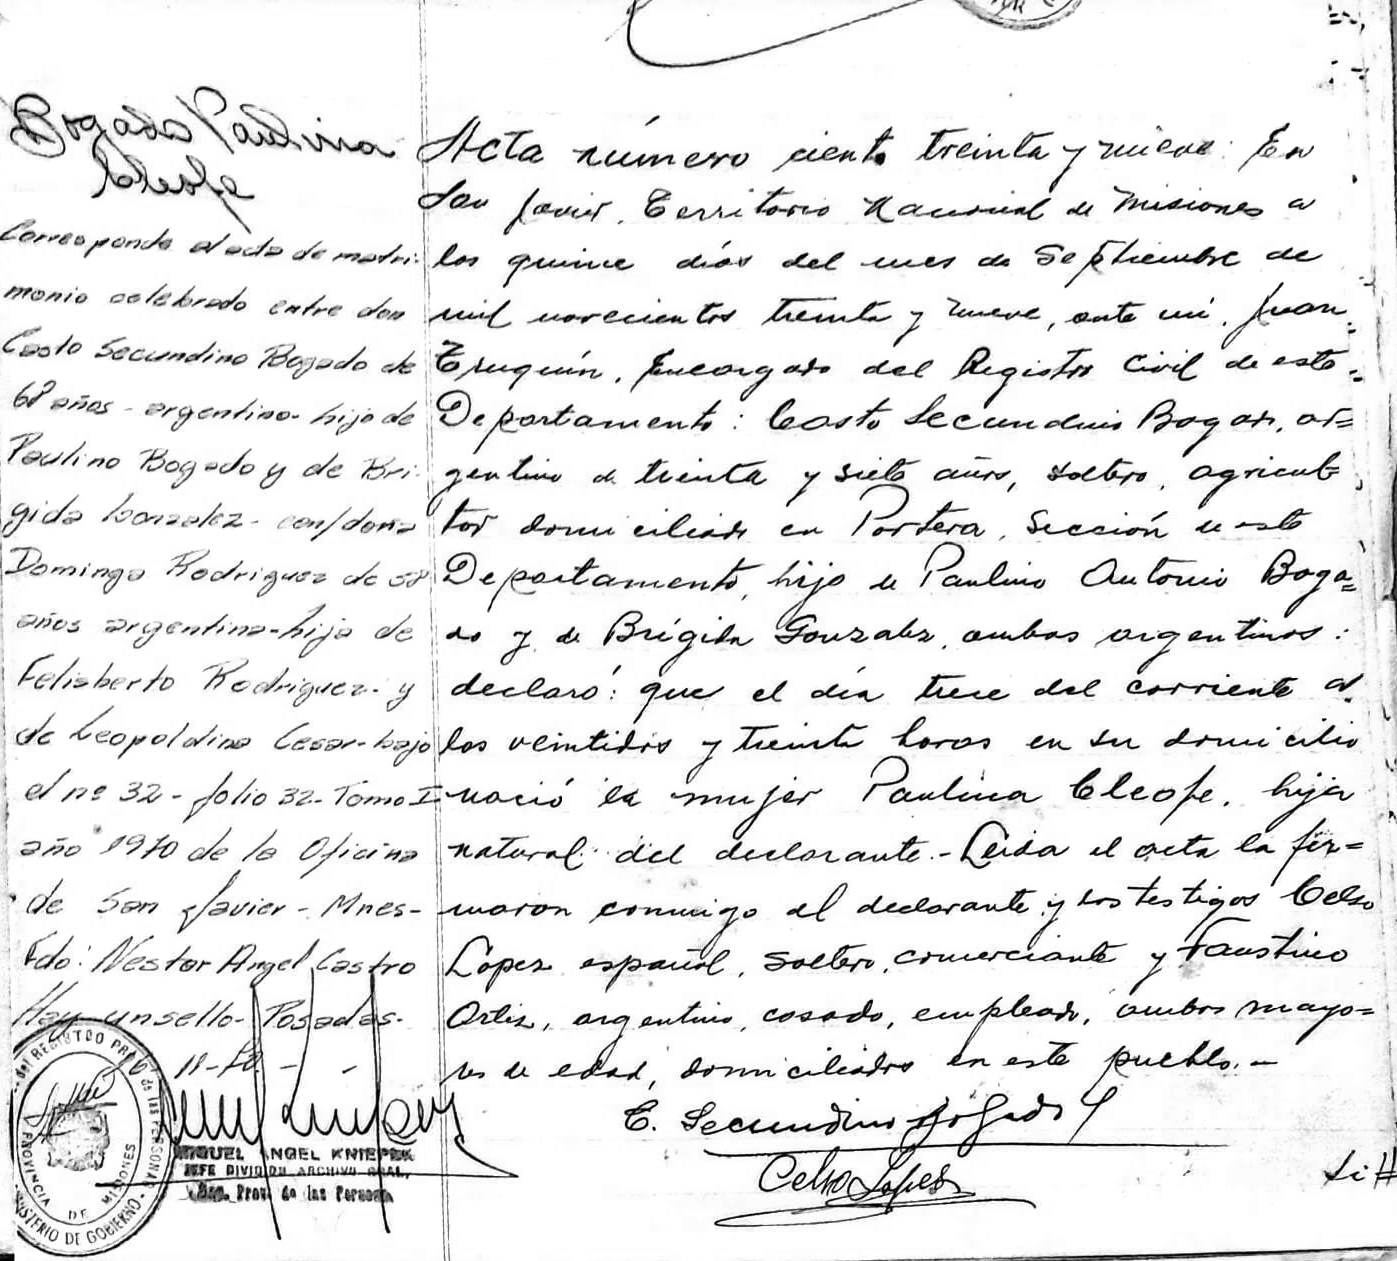 Bogado Paulina
Cleofe
Corresponde al acta de matri-
monio celebrado entre don
Casto Secundino Bogado de
68 años - argentino - hijo de
Paulino Bogado y de Bri-
gida Gonzalez - con doña
Dominga Rodriguez de 58
años argentina - hija de
Felisberto Rodriguez - y
de Leopoldina Cesar - bajo
el nº 32 - folio 32 - Tomo I
año 1970 de la Oficina
de San Javier - Mnes -
Fdo: Nestor Angel Castro
Hay un sello - Posadas -
11-70 - -
MIGUEL ANGEL KNIEPEK
JEFE DIVISION ARCHIVO GRAL.
Prov. de las Personas
del REGISTRO PROV. de las PERSONAS
PROVINCIA DE MISIONES
MINISTERIO DE GOBIERNO
Acta número ciento treinta y nueve: En
San Javier, Territorio Nacional de Misiones a
los quince días del mes de Septiembre de
mil novecientos treinta y nueve, ante mí, Juan
Encargado del Registro Civil de este
Departamento: Casto Secundino Bogado, ar=
gentino de treinta y siete años, soltero, agricul=
tor domiciliado en Portera, Sección de este
Departamento, hijo de Paulino Antonio Boga=
do y de Brígida Gonzalez, ambos argentinos:
declaró: que el día trece del corriente a
las veintidos y treinta horas en su domicilio
nació la mujer Paulina Cleofe, hija
natural del declarante. - Leida el acta la fir=
maron conmigo el declarante y los testigos Celso
Lopez español, soltero, comerciante y Faustino
Ortiz, argentino, casado, empleado, ambos mayo=
res de edad, domiciliados en este pueblo. -
C. Secundino Bogado
Celso Lopez